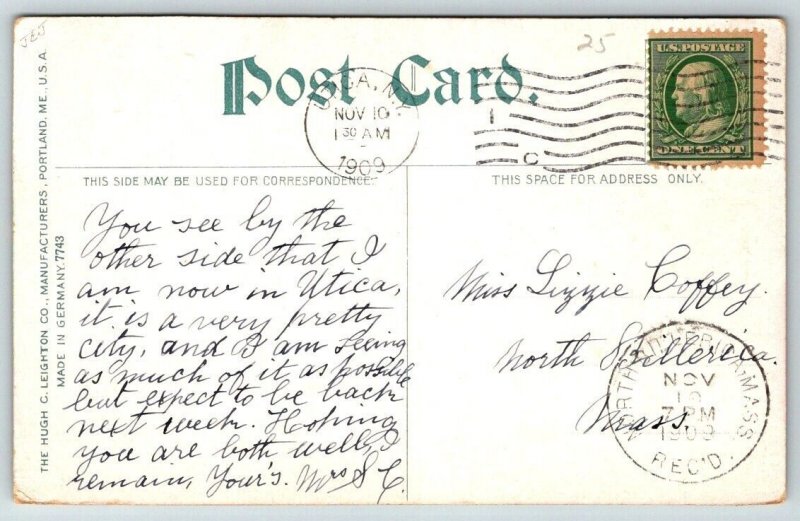 JEJ
25
U.S. POSTAGE
ONE CENT
Post Card.
UTICA, N.Y.
NOV 10
1 30 AM
1909
1
C
THIS SIDE MAY BE USED FOR CORRESPONDENCE.
THIS SPACE FOR ADDRESS ONLY.
THE HUGH C. LEIGHTON CO., MANUFACTURERS, PORTLAND, ME., U.S.A.
MADE IN GERMANY. 7743
You see by the
other side that I
am now in Utica,
it is a very pretty
city, and I am seeing
as much of it as possible
but expect to be back
next week. Hoping
you are both well, I
remain, Your's. Mrs S C.
Miss Lizzie Coffey.
North Billerica.
Mass.
NORTH BILLERICA, MASS.
NOV
10
7 PM
1909
REC'D.